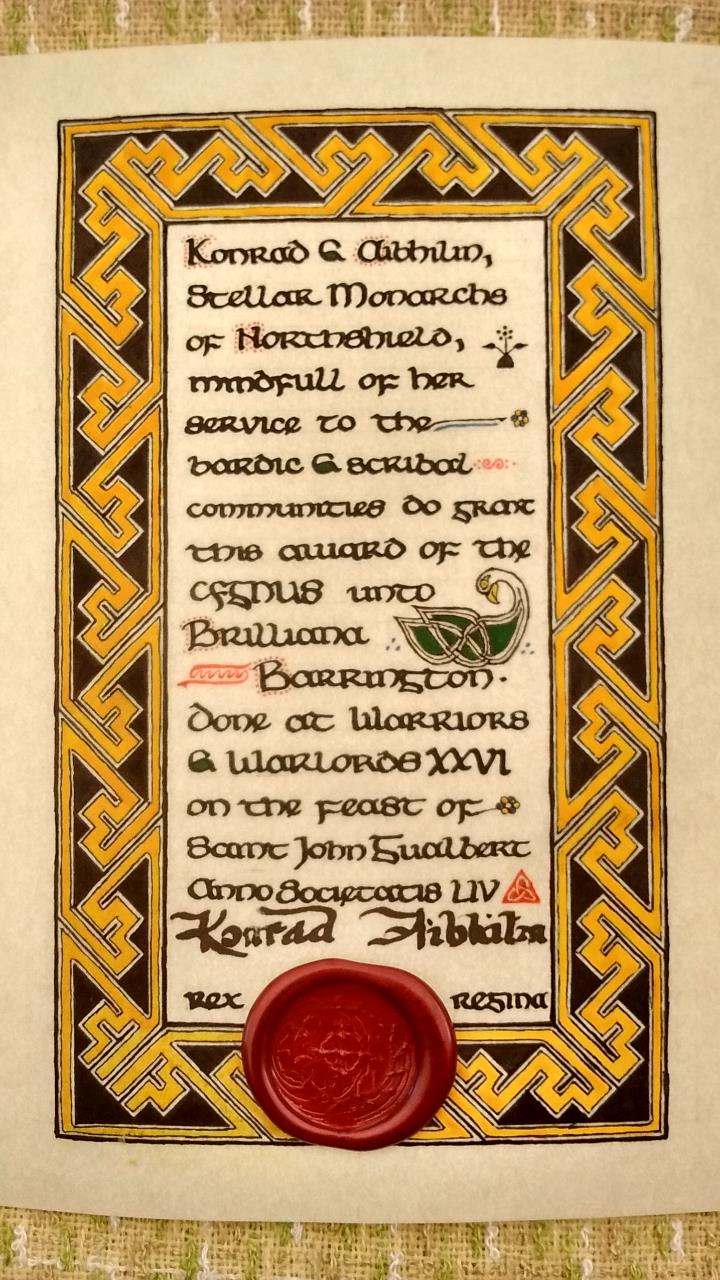 Konrad & Aibhilin,
Stellar Monarchs
of Northshield,
mindfull of her
service to the
bardic & scribal
communities do grant
this award of the
CYGNUS unto
Brilliana
Barrington.
Done at Warriors
& Warlords XXVI
on the feast of
Saint John Gualbert
Anno Societatis LIV
Konrad Aibhilin
rex regina